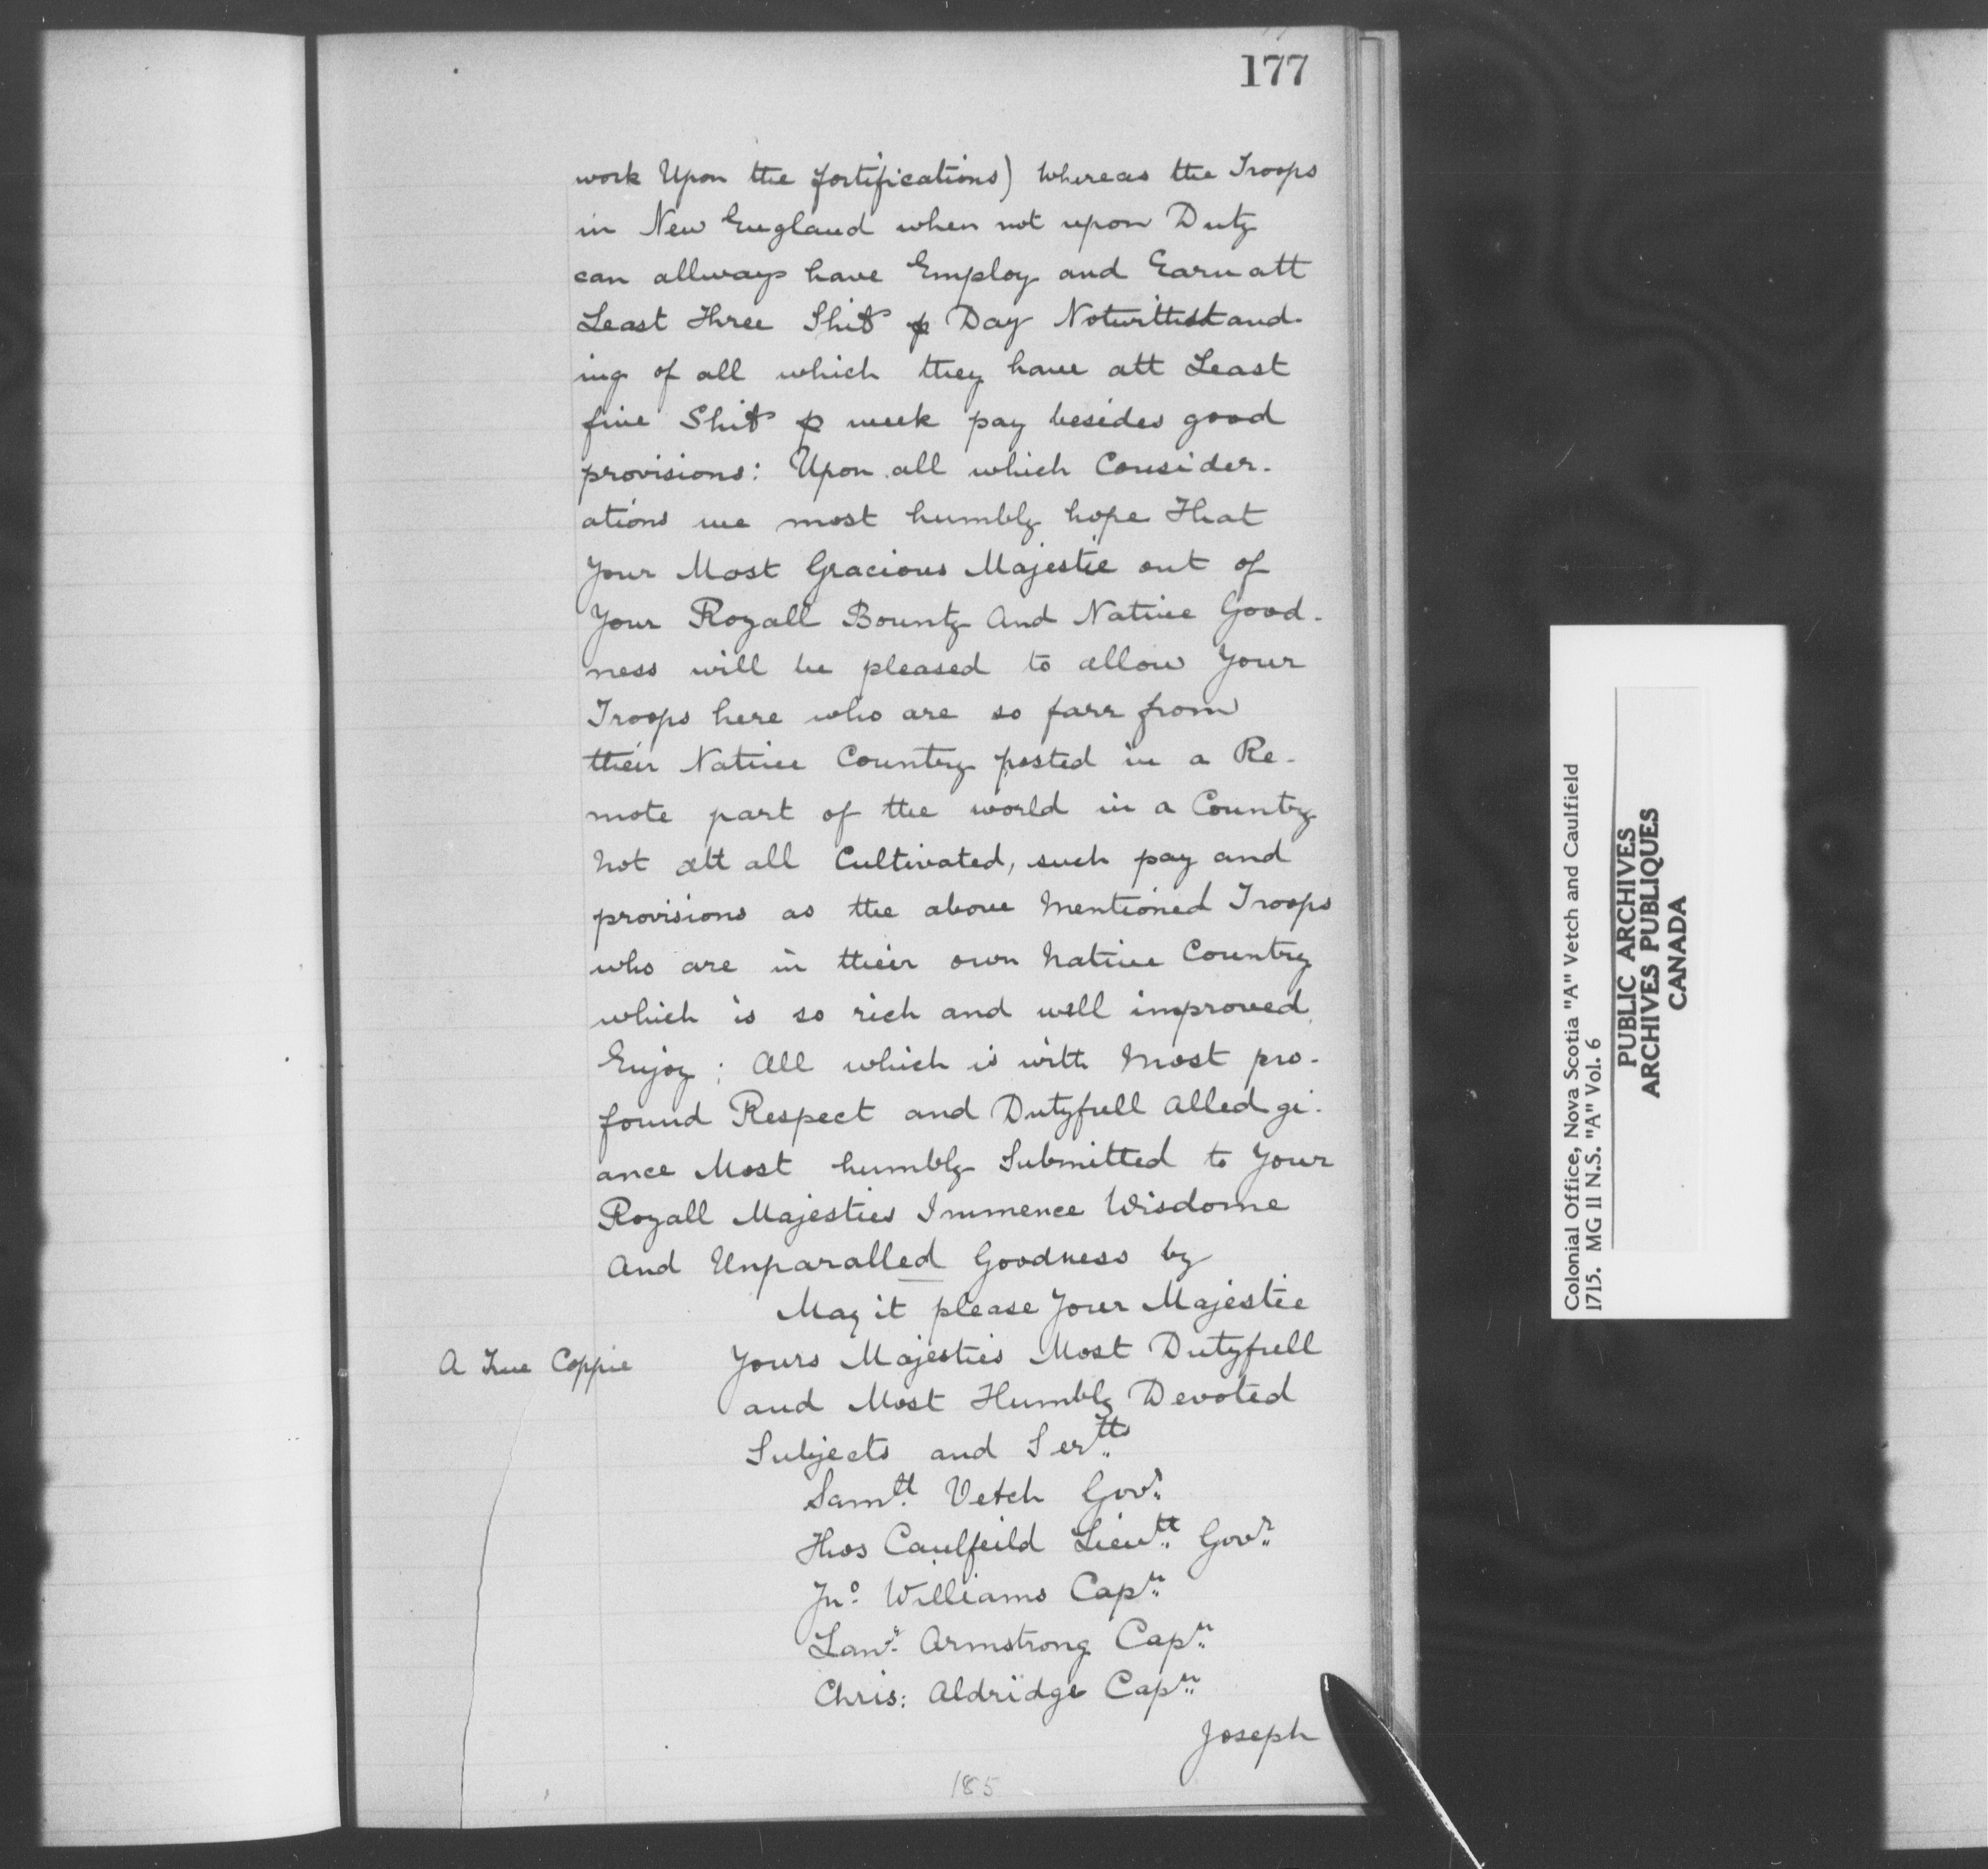 177
work Upon the fortifications) Whereas the Troops
in New England when not upon Duty
can allways have Employ and Earn att
Least Three Shills p Day Notwithstand-
ing of all which they have att Least
five Shills p week pay besides good
provisions: Upon all which Consider-
ations we most humbly hope That
Your Most Gracious Majestie out of
Your Royall Bounty And Native Good-
ness will be pleased to allow Your
Troops here who are so farr from
their Native Country posted in a Re-
mote part of the world in a Country
Not att all Cultivated, such pay and
provisions as the above Mentioned Troops
who are in their own Native Country
which is so rich and well improved
Enjoy; All which is with Most pro-
found Respect and Dutyfull Alledgi-
ance Most humbly Submitted to Your
Royall Majesties Immence Wisdome
And Unparalled Goodness by
May it please Your Majestie
A True Coppie
Yours Majesties Most Dutyfull
and Most Humbly Devoted
Subjects and Sertts
Samll Vetch Govr
Thos Caulfeild Lieutt Govr
Jno Williams Capn
Lawr Armstrong Capn
Chris: Aldridge Capn
Joseph
185
Colonial Office, Nova Scotia "A" Vetch and Caulfield
1715. MG II N.S. "A" Vol. 6
PUBLIC ARCHIVES
ARCHIVES PUBLIQUES
CANADA